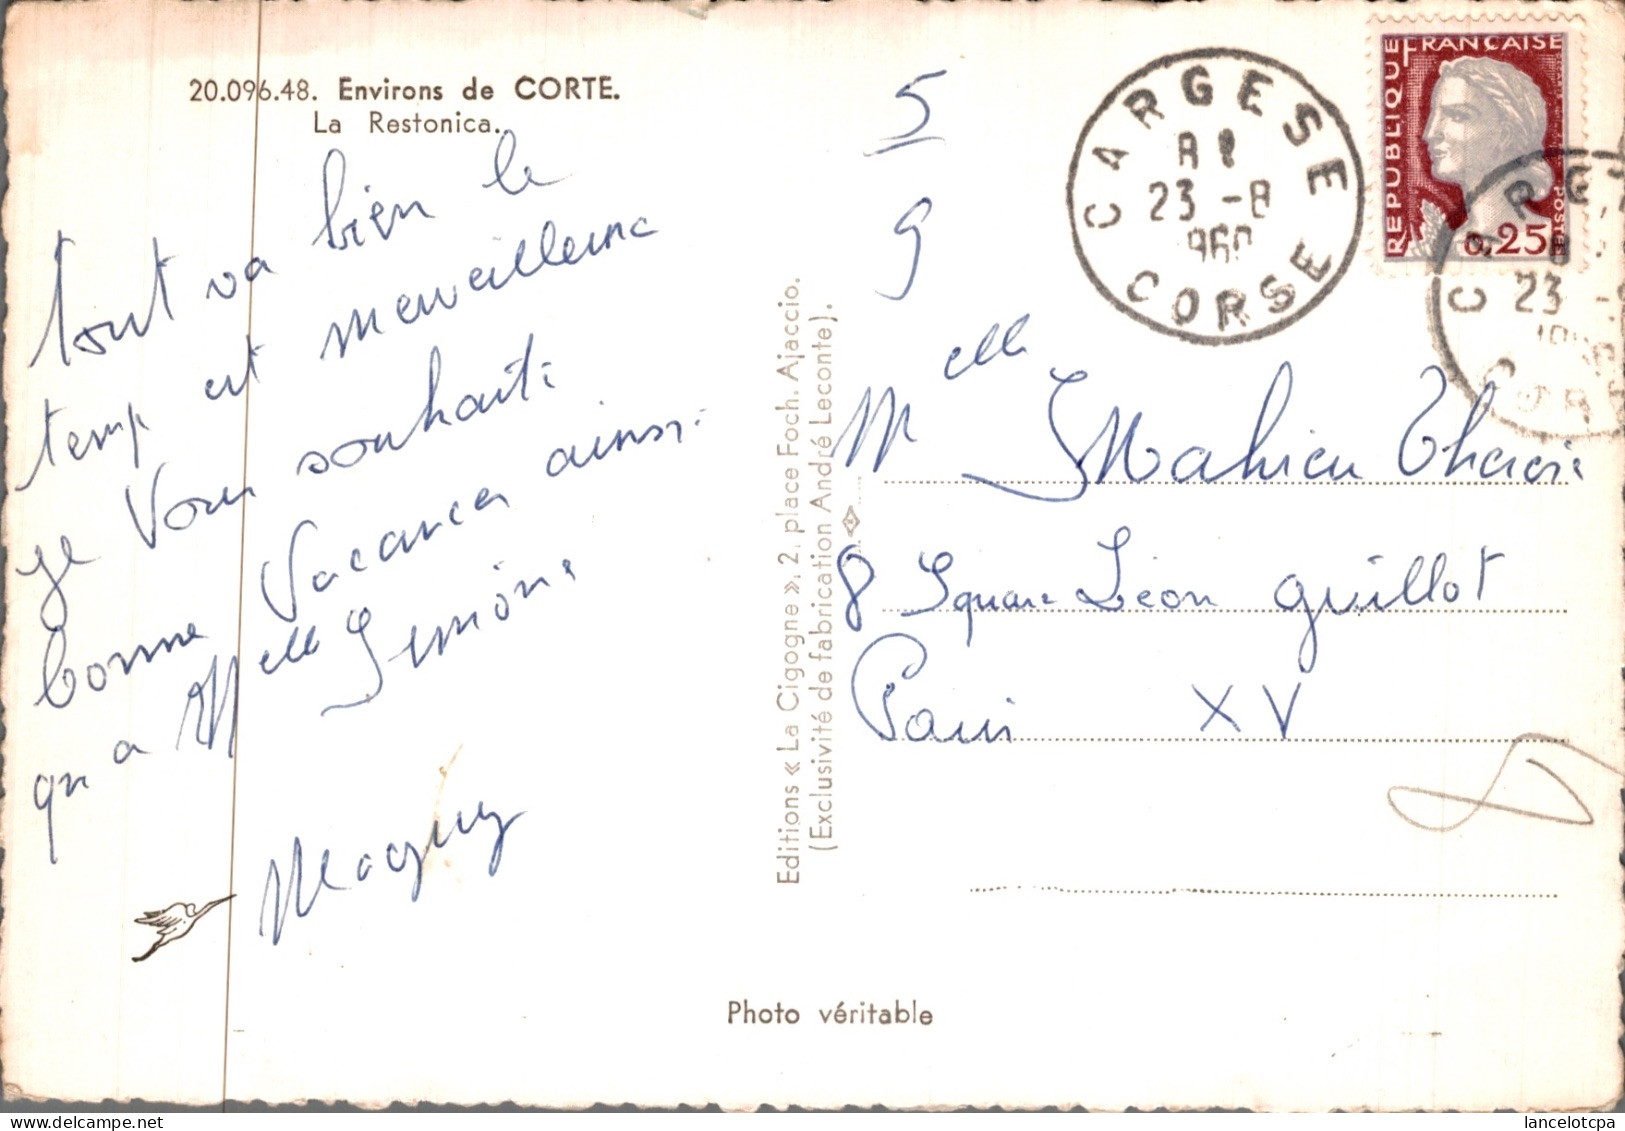 20.096.48. Environs de CORTE.
La Restonica.
tout va bien le
temp est merveilleux
je vous souhaite
bonne vacances ainsi
qu a Melle Simone
Maguy
Editions « La Cigogne », 2, place Foch. Ajaccio.
(Exclusivité de fabrication André Leconte).
Photo véritable
5
9
CARGESE
23 -8
1960
CORSE
REPUBLIQUE FRANÇAISE
POSTES
0,25
CARGESE
23 -8
CORSE
Melle Mahieu
8 Square Léon Guillot
Paris XV
lancelotcpa www.delcampe.net